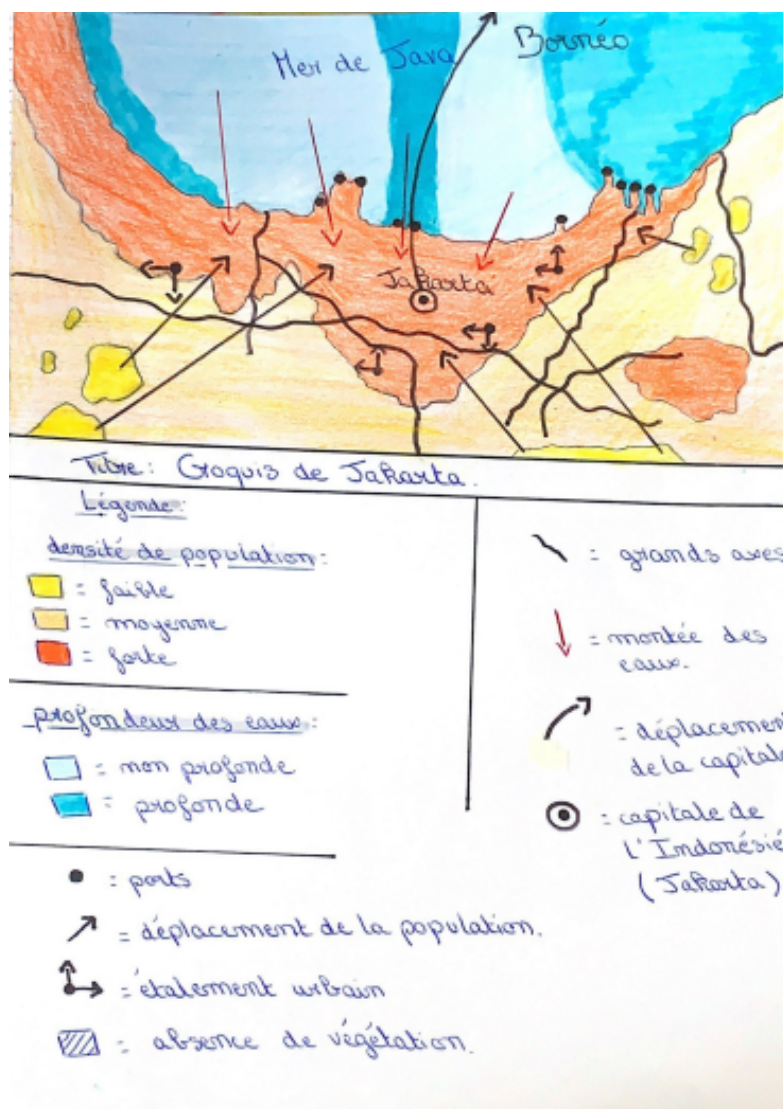 Mer de Java
Bornéo
Jakarta
Titre: Croquis de Jakarta.
Légende:
densité de population:
= faible
= moyenne
= forte
profondeur des eaux:
= non profonde
= profonde
: ports
= déplacement de la population.
= étalement urbain
= absence de végétation.
= grands axes
= montée des
eaux.
= déplacement
de la capitale
= capitale de
l'Indonésie
(Jakarta)